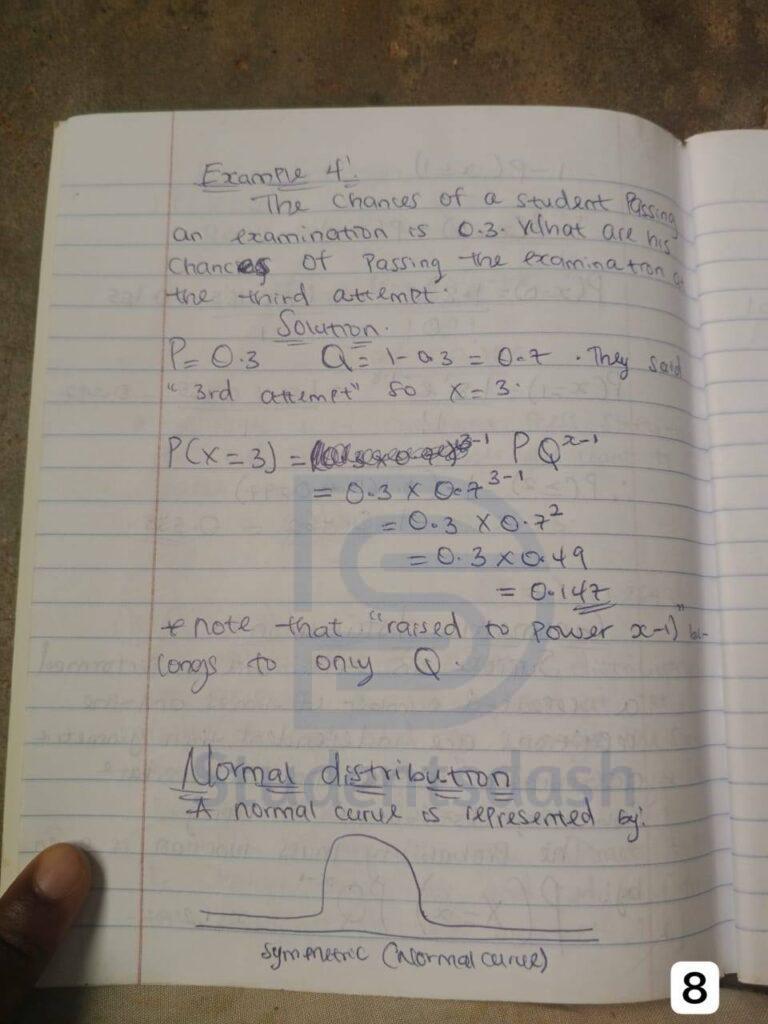 Example 4:
The chances of a student Passing
an examination is 0.3. What are his
chances of Passing the examination at
the third attempt.
Solution.
P = 0.3 Q = 1 - 0.3 = 0.7 . They said
"3rd attempt" so x = 3.
P(x = 3) = P Q^{x-1}
= 0.3 × 0.7^{3-1}
= 0.3 × 0.7^2
= 0.3 × 0.49
= 0.147
* note that "raised to power x-1)" be-
longs to only Q.
Normal distribution
A normal curve is represented by:
Symmetric (Normal curve)
Studentsdash
8